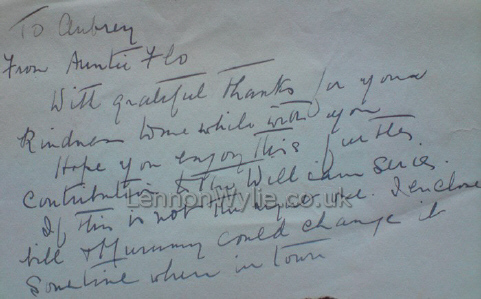 To Aubrey
From Auntie Flo
With grateful thanks for your
kindness to me while with you
Hope you enjoy this further
contribution to the William Series.
If this is not the right one. I enclose
bill & Mummy could change it
Sometime when in town
LennonWylie.co.uk